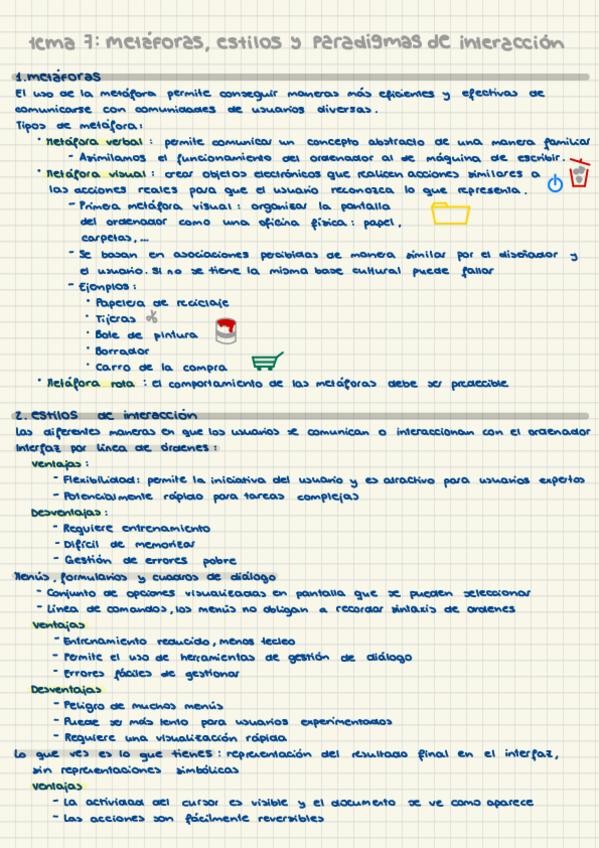 tema 7: metáforas, estilos y paradigmas de interacción
1. metáforas
El uso de la metáfora permite conseguir maneras más eficientes y efectivas de
comunicarse con comunidades de usuarios diversas.
Tipos de metáfora:
· Metáfora verbal: permite comunicar un concepto abstracto de una manera familiar
- Asimilamos el funcionamiento del ordenador al de máquina de escribir.
· Metáfora visual: crear objetos electrónicos que realicen acciones similares a
las acciones reales para que el usuario reconozca lo que representa.
- Primera metáfora visual: organizar la pantalla
del ordenador como una oficina física: papel,
carpetas,...
- Se basan en asociaciones percibidas de manera similar por el diseñador y
el usuario. Si no se tiene la misma base cultural puede fallar
- Ejemplos:
· Papelera de reciclaje
· Tijeras
· Bote de pintura
· Borrador
· Carro de la compra
· Metáfora rota: el comportamiento de las metáforas debe ser predecible
2. estilos de interacción
Las diferentes maneras en que los usuarios se comunican o interaccionan con el ordenador
Interfaz por línea de órdenes:
Ventajas:
- Flexibilidad: permite la iniciativa del usuario y es atractivo para usuarios expertos
- Potencialmente rápido para tareas complejas
Desventajas:
- Requiere entrenamiento
- Difícil de memorizar
- Gestión de errores pobre
Menús, formularios y cuadros de diálogo
- Conjunto de opciones visualizadas en pantalla que se pueden seleccionar
- Línea de comandos, los menús no obligan a recordar sintaxis de ordenes
Ventajas
- Entrenamiento reducido, menos tecleo
- Permite el uso de herramientas de gestión de diálogo
- Errores fáciles de gestionar
Desventajas
- Peligro de muchos menús
- Puede ser más lento para usuarios experimentados
- Requiere una visualización rápida
Lo que ves es lo que tienes: representación del resultado final en el interfaz,
sin representaciones simbólicas
Ventajas
- La actividad del cursor es visible y el documento se ve como aparece
- Las acciones son fácilmente reversibles